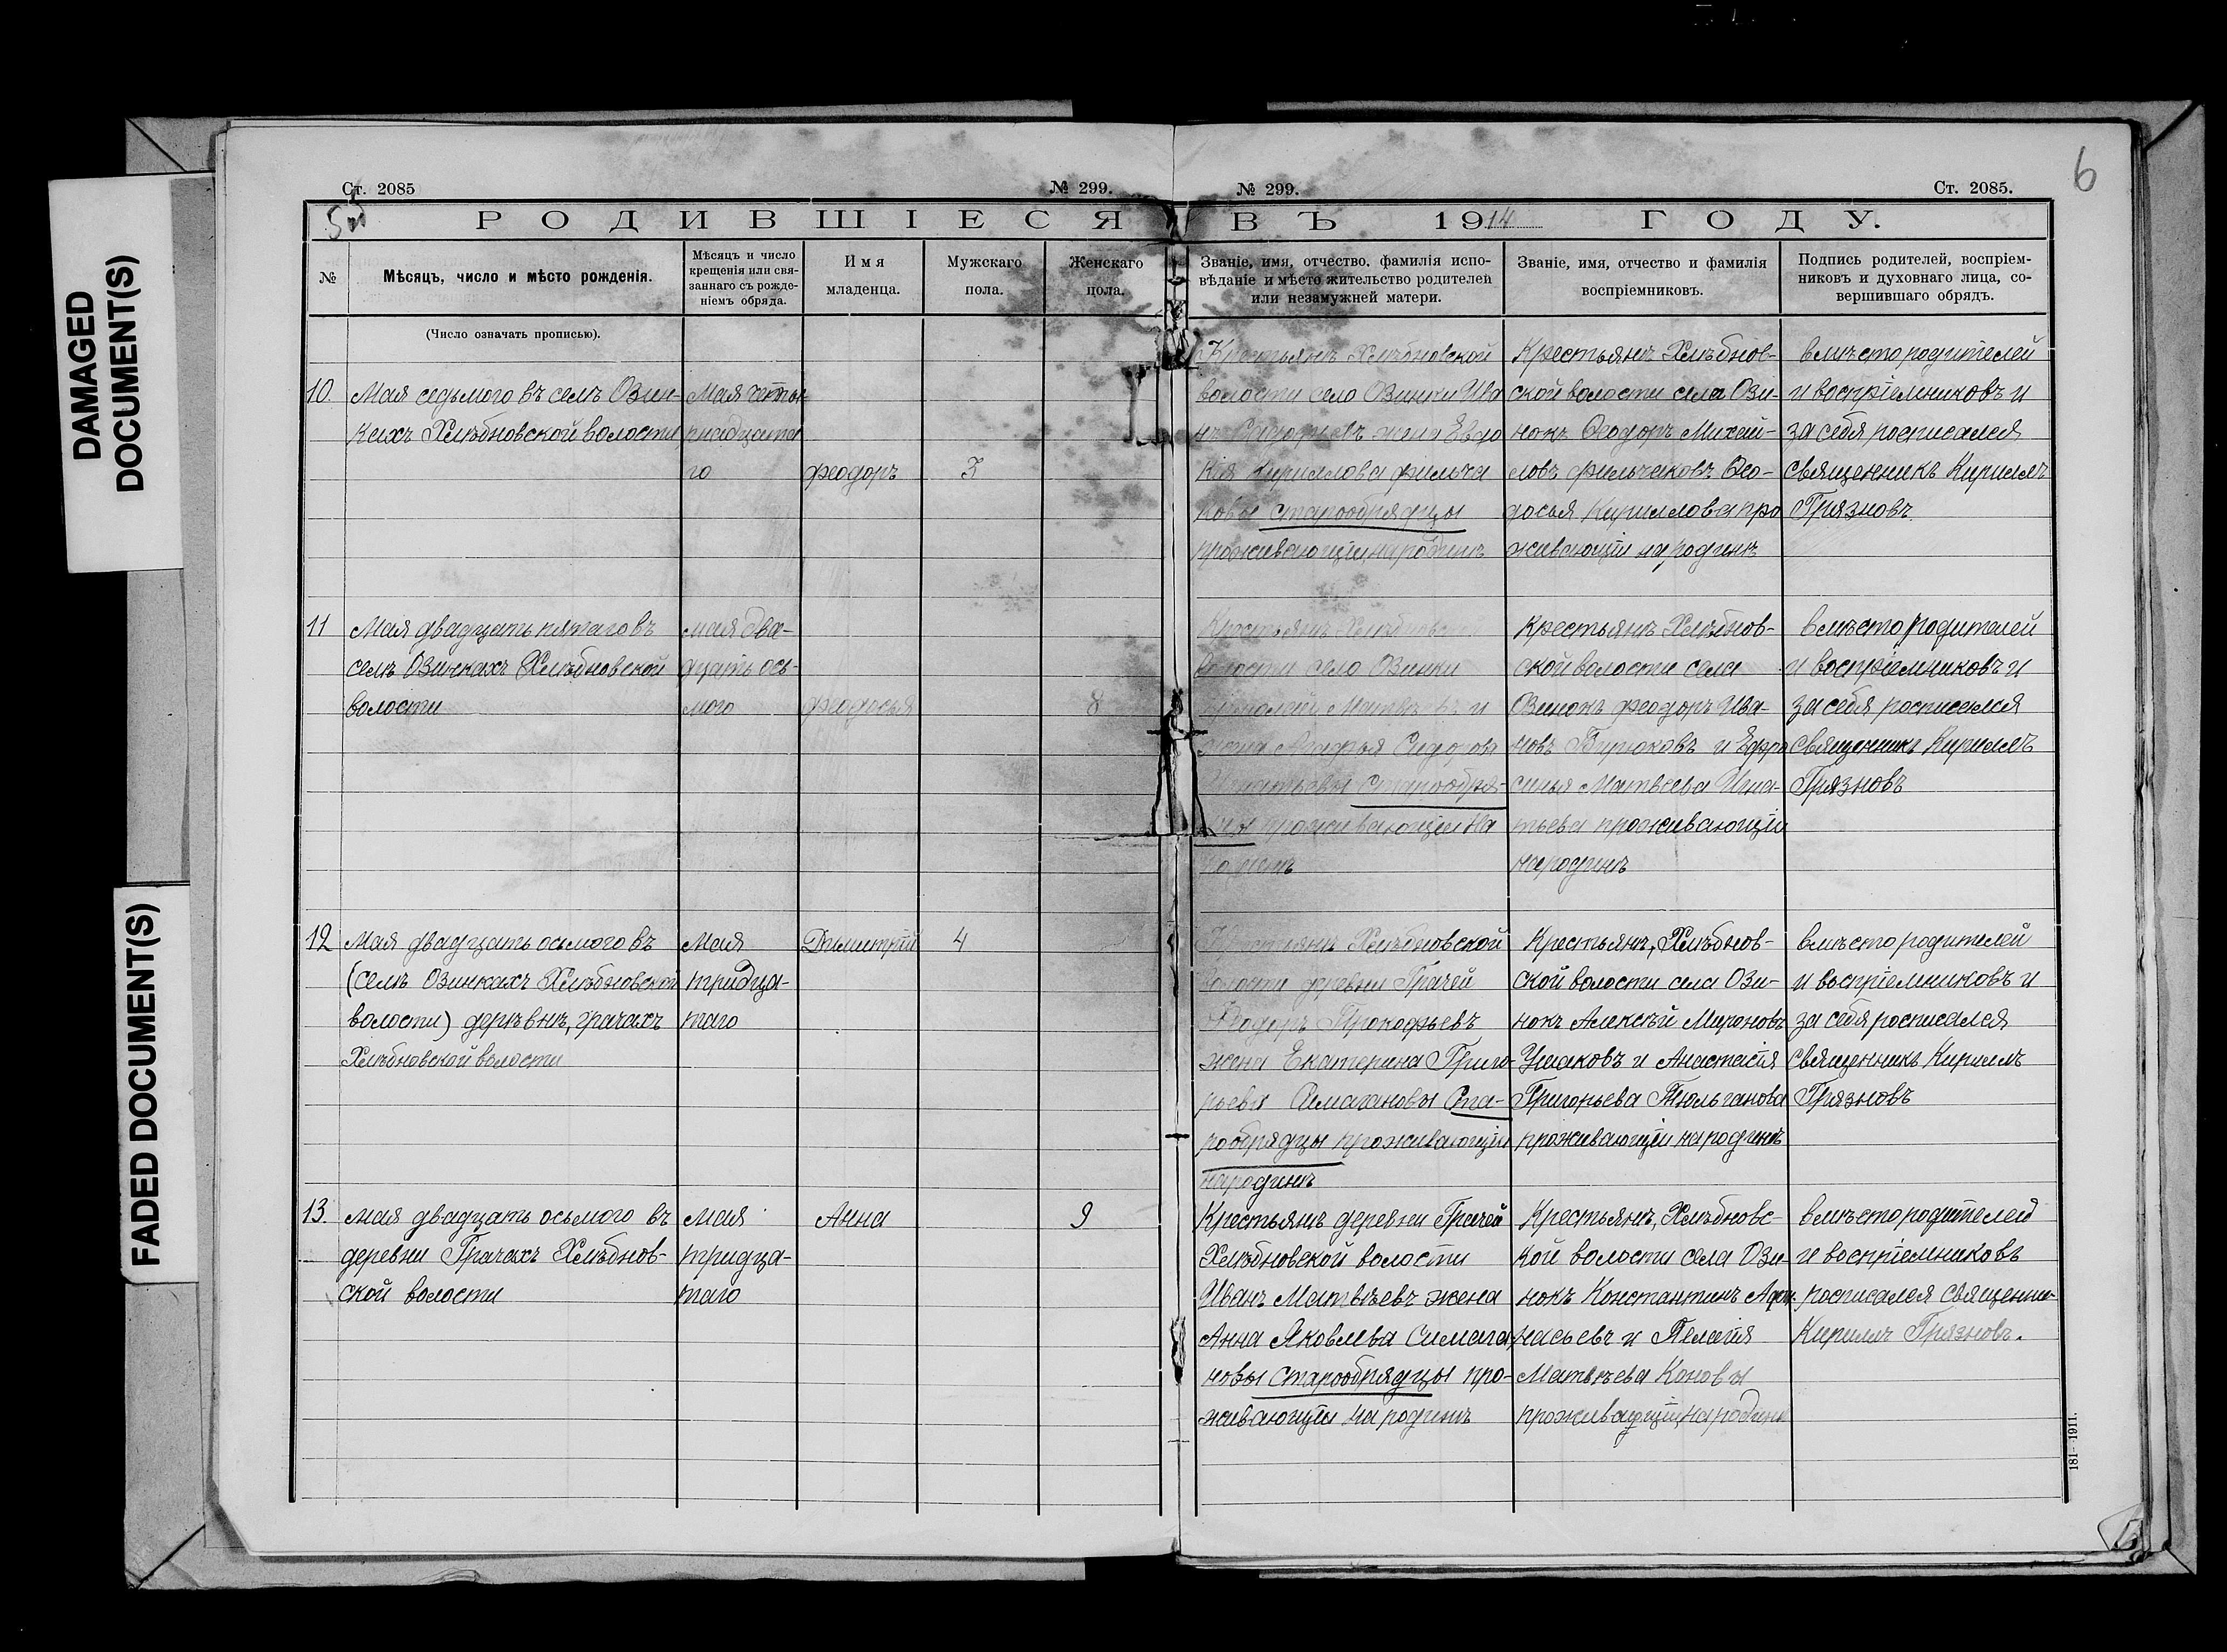 DAMAGED
DOCUMENT(S)
FADED DOCUMENT(S)
6
Ст. 2085
№ 299.
№ 299.
Ст. 2085.
РОДИВШІЕСЯ ВЪ 1914 ГОДУ.
№
Мѣсяцъ, число и мѣсто рожденія.
Мѣсяцъ и число
крещенія или свя-
заннаго съ рожде-
ніемъ обряда.
Имя
младенца.
Мужскаго
пола.
Женскаго
пола.
Званіе, имя, отчество, фамилія испо-
вѣданіе и мѣсто жительство родителей
или незамужней матери.
Званіе, имя, отчество и фамилія
воспріемниковъ.
Подпись родителей, воспріем-
никовъ и духовнаго лица, со-
вершившаго обрядъ.
(Число означать прописью).
10. Мая седьмого въ селѣ Озин-
кахъ Хлѣбновской волости
Мая четы-
рнадцата
го
Феодоръ
3
Крестьянъ Хлѣбновской
волости село Озинки Ива
жена Евдо
кія Кириллова Фильча
ковы старообрядцы
проживающіи на родинѣ
Крестьянъ Хлѣбнов-
ской волости села Ози-
нокъ Феодоръ Михай-
ловъ Фильчаковъ Фео-
досья Кириллова про
живающіи на родинѣ
вмѣсто родителей
и воспріемниковъ и
за себя росписался
священникъ Кириллъ
Грязновъ
11 Мая двадцать пятаго въ
селѣ Озинкахъ Хлѣбновской
волости
мая два-
дцать ось-
мого
Феодосья
8
Крестьянъ Хлѣбновс
волости село Озинки
и
жена Агафья Сидорова
Игнатьевы старообря-
проживающіи на
Крестьянъ Хлѣбнов-
ской волости села
Озинокъ Феодоръ Ива-
новъ Бирюковъ и Ефро
синья Матвеева Игна-
тьева проживающіи
на родинѣ
вмѣсто родителей
и воспріемниковъ и
за себя росписался
священникъ Кириллъ
Грязновъ
12 Мая двадцать осьмого въ
(селѣ Озинкахъ Хлѣбновской
волости) деревнѣ, грачахъ
Хлѣбновской волости
Мая
тридца-
таго
Димитрій
4
Крестьянъ Хлѣбновской
волости деревни Грачей
Феодоръ Прокофьевъ
жена Екатерина Григо-
рьева Симагановы Ста-
рообрядцы проживающіи
на родинѣ
Крестьянъ, Хлѣбнов-
ской волости села Ози-
нокъ Алексѣй Мироновъ
Ушаковъ и Анастасія
Григорьева Тюльганова
проживающіи на родинѣ
вмѣсто родителей
и воспріемниковъ и
за себя росписался
священникъ Кириллъ
Грязновъ
13. мая двадцать осьмого въ
деревни Грачахъ Хлѣбнов-
ской волости
мая
тридца-
таго
Анна
9
Крестьянъ деревни Грачей
Хлѣбновской волости
Иванъ Матвѣевъ жена
Анна Яковлева Симага
новы старообрядцы про-
живающіи на родинѣ
Крестьянъ, Хлѣбновс-
кой волости села Ози-
нокъ Константинъ Афа-
насьевъ и Пелагія
Матвѣева Коновы
проживающіи, на родинѣ
вмѣсто родителей
и воспріемниковъ
росписался священни-
Кириллъ Грязновъ.
181–1911.